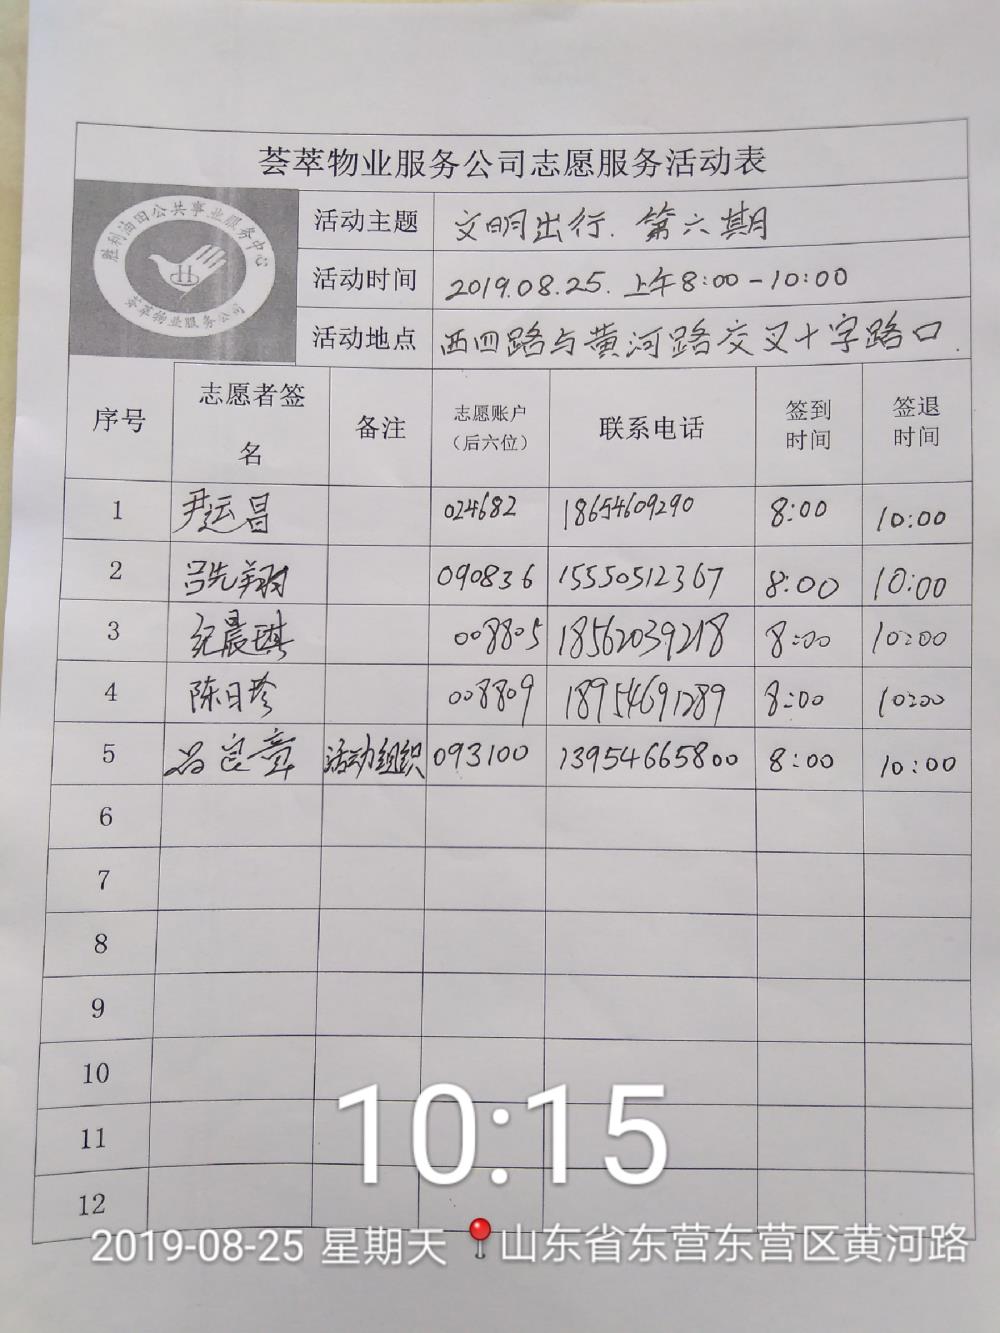 荟萃物业服务公司志愿服务活动表
胜利油田公共事业服务中心
荟萃物业服务公司
活动主题 文明出行.第六期
活动时间 2019.08.25.上午8:00-10:00
活动地点 西四路与黄河路交叉十字路口.
序号 志愿者签名 备注 志愿账户（后六位） 联系电话 签到时间 签退时间
1 尹运昌 024682 18654609290 8:00 10:00
2 吕先翔 090836 15550512367 8:00 10:00
3 纪晨琪 008805 18562039218 8:00 10:00
4 陈日珍 008809 18954691289 8:00 10:00
5 吕良章 活动组织 093100 13954665800 8:00 10:00
6
7
8
9
10
11
12
10:15
2019-08-25 星期天 山东省东营东营区黄河路